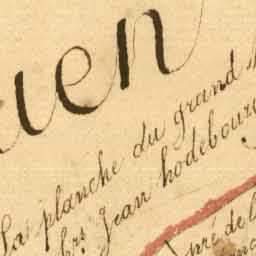 uen
La planche du grand
hrs Jean hodebourg
pré de l